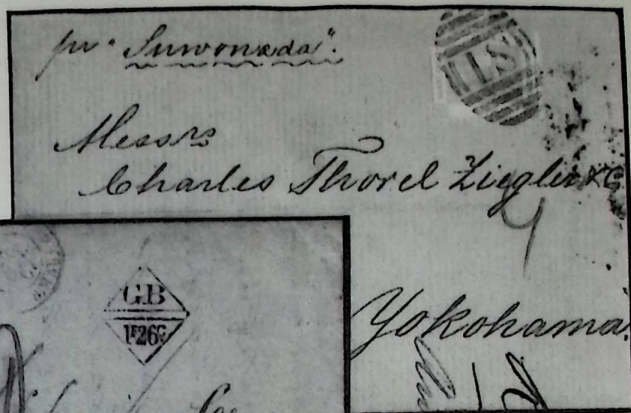 pr "Suwonada".
Messrs
Charles Thorel Ziegler & Co
4
Yokohama.
GB
1F26C